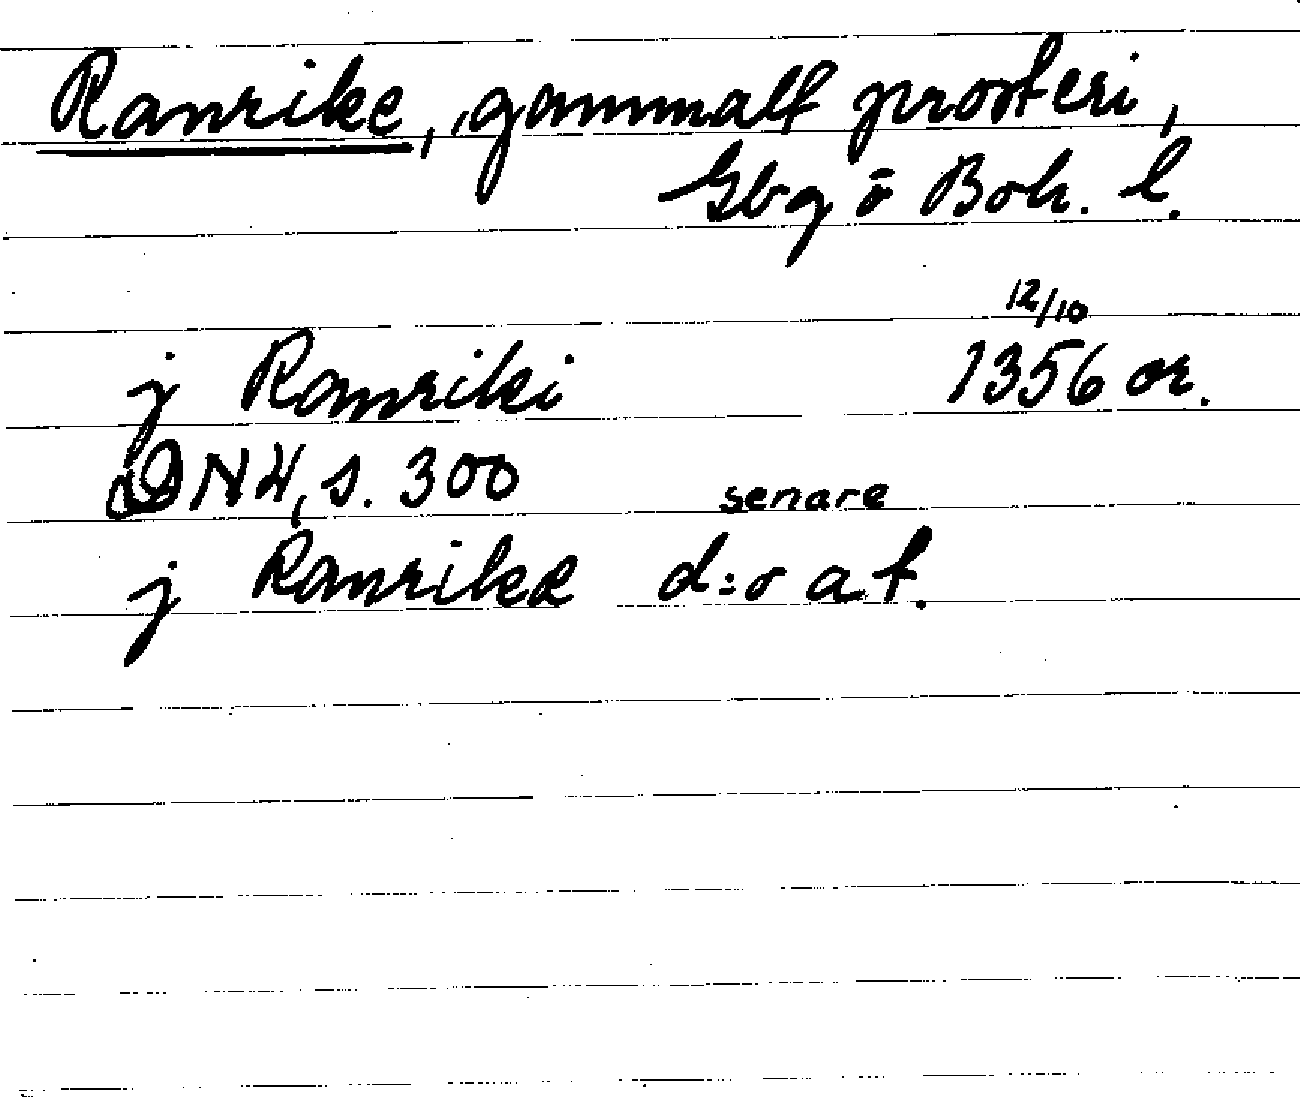 Ranrike, gammalt prosteri,
Gbg o Boh. l.
12/10
j Ranriki 1356 or.
DN4, s. 300
senare
j Ranrike d:o a f.